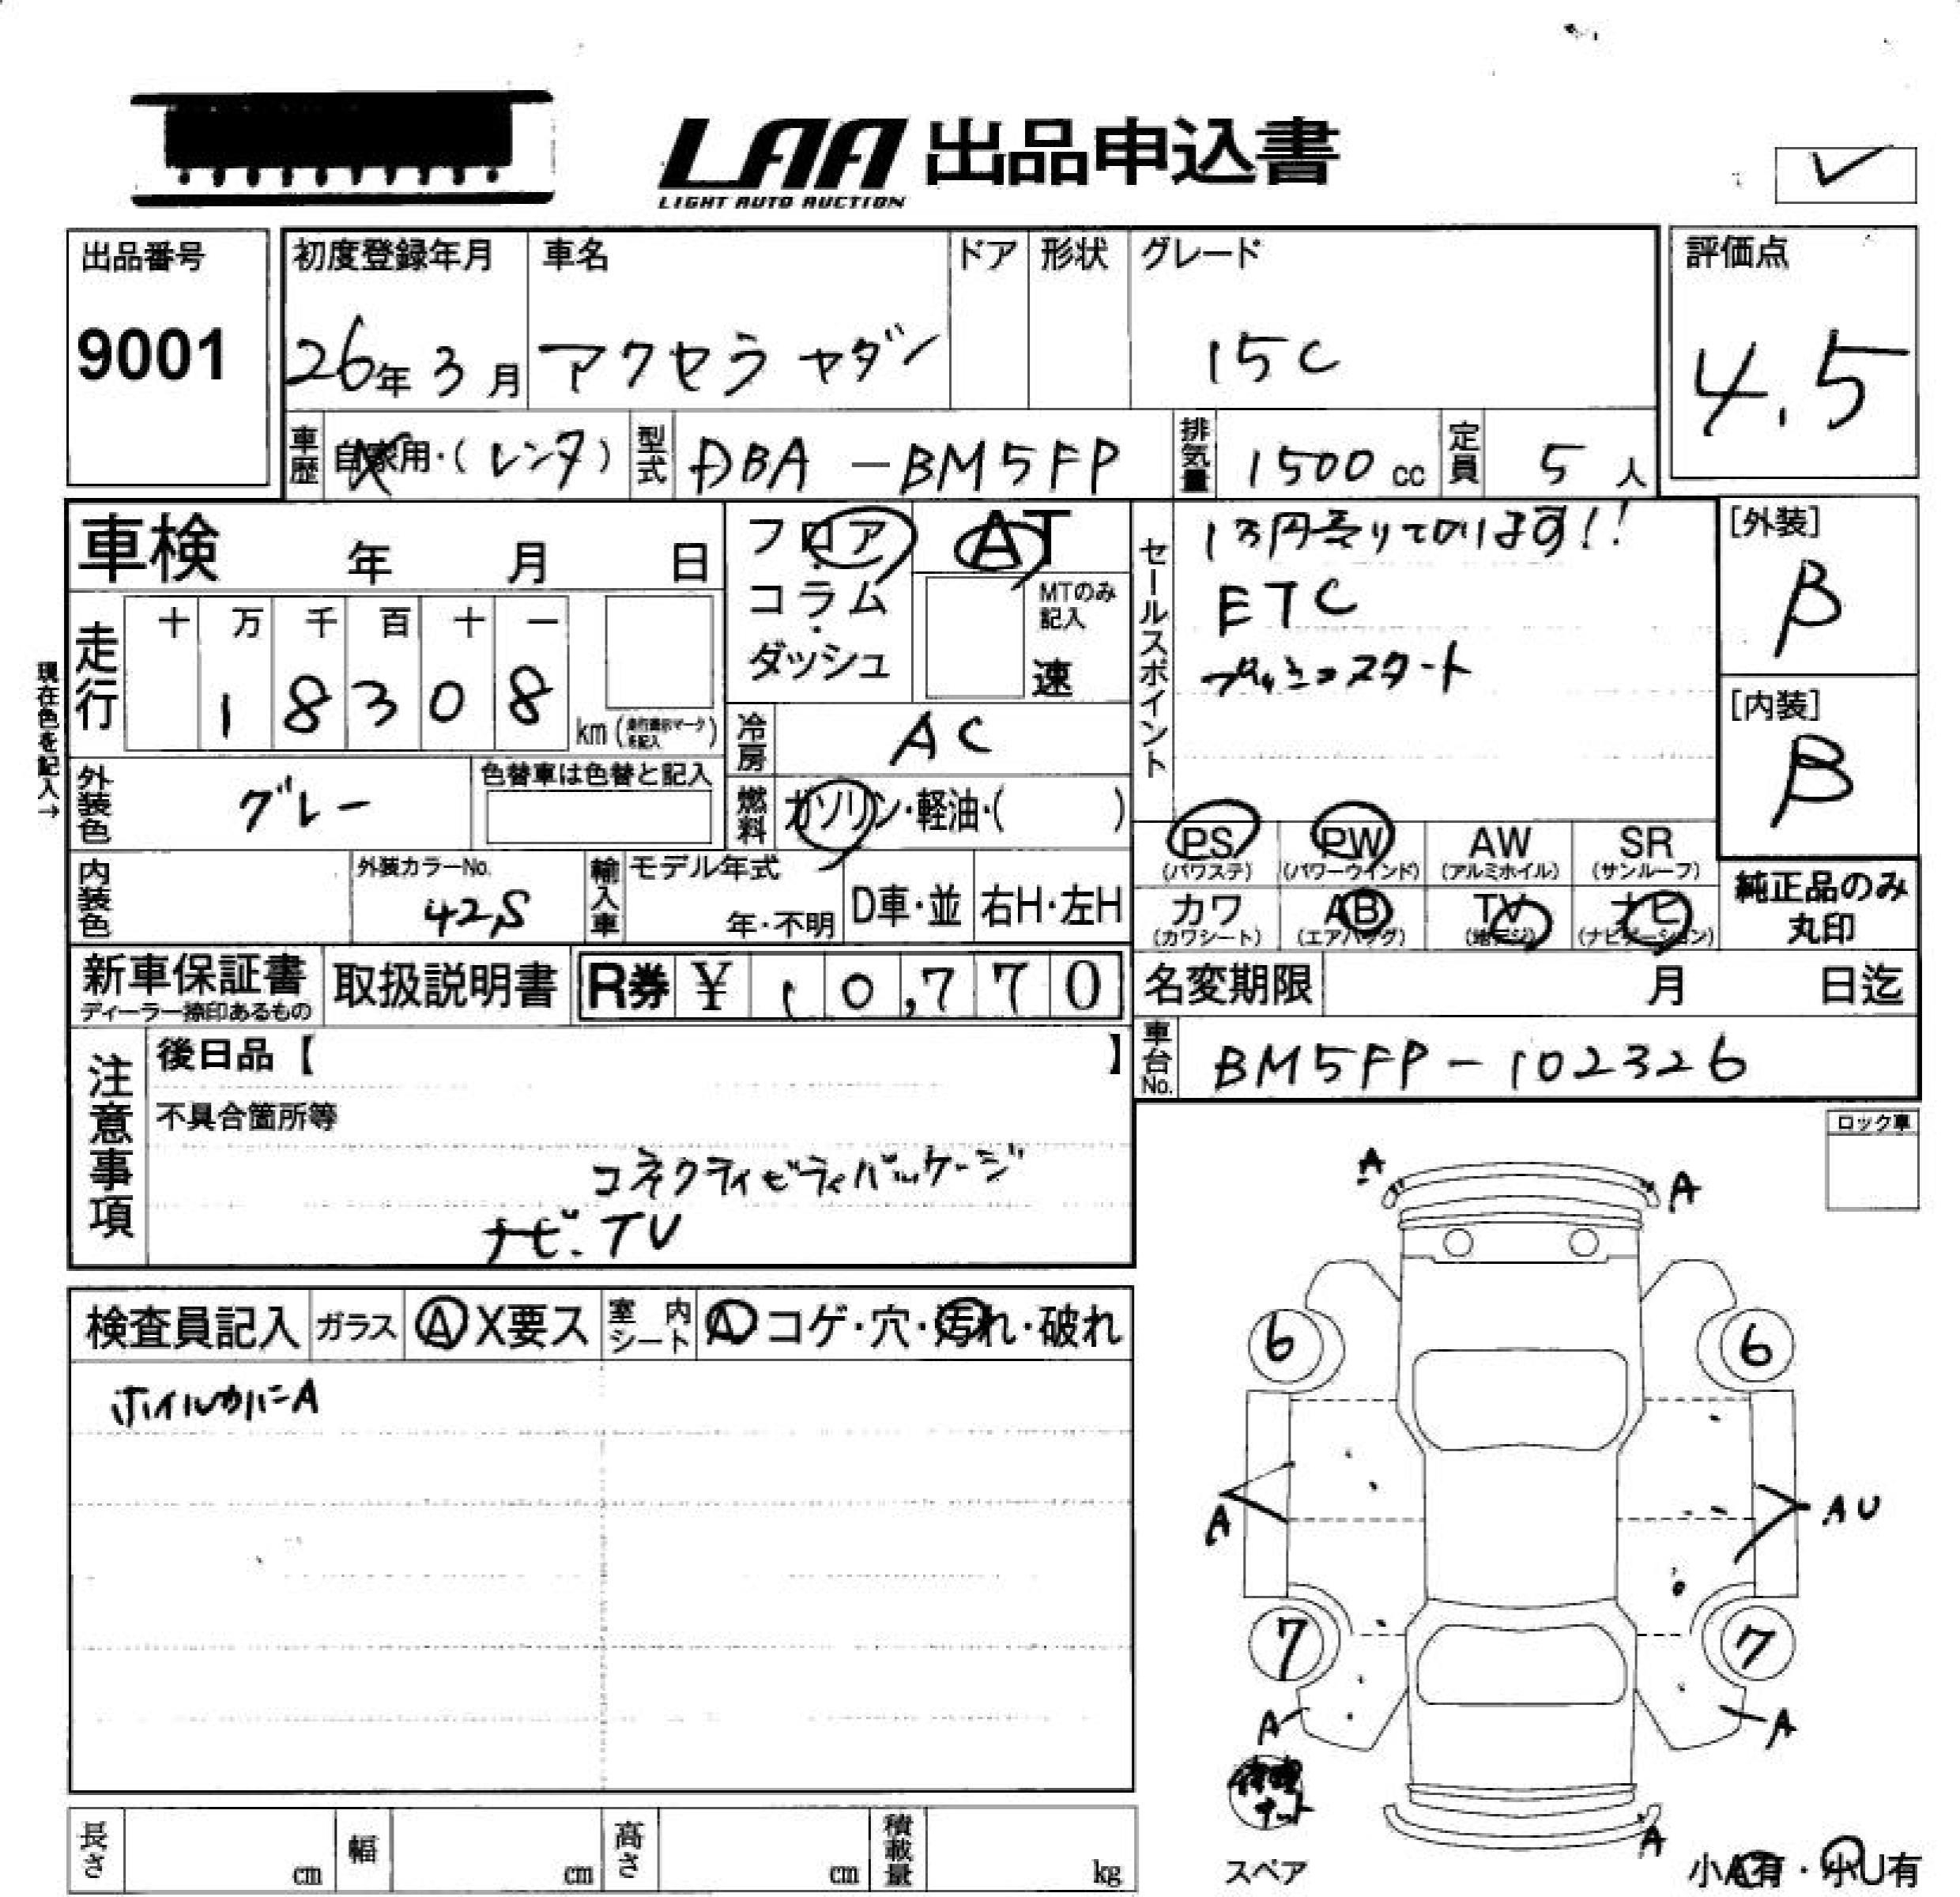 LAA 出品申込書
LIGHT AUTO AUCTION
出品番号
9001
初度登録年月
26年3月
車名
アクセラ セダン
ドア
形状
グレード
15C
評価点
4.5
車歴
自家用・(レンタ)
型式
DBA-BM5FP
排気量
1500cc
定員
5人
車検 年 月 日
フロア・コラム・ダッシュ
AT
MTのみ記入
速
セールスポイント
1万円売りております!!
ETC
プッシュスタート
[外装]
B
[内装]
B
現在色を記入→
走行
十 万 千 百 十 一
1 8 3 0 8
km(走行表示マークを記入)
冷房
AC
外装色
グレー
色替車は色替と記入
燃料
ガソリン・軽油・( )
PS (パワステ)
PW (パワーウインド)
AW (アルミホイル)
SR (サンルーフ)
内装色
外装カラーNo.
42S
輸入車
モデル年式
年・不明
D車・並
右H・左H
カワ (カワシート)
AB (エアバッグ)
TV (地デジ)
ナビ (ナビゲーション)
純正品のみ丸印
新車保証書
ディーラー捺印あるもの
取扱説明書
R券 ¥ 10,770
名変期限 月 日迄
注意事項
後日品【 】
車台No.
BM5FP-102326
不具合箇所等
コネクティビティパッケージ
ナビ.TV
ロック車
A
A
検査員記入
ガラス
A X要ス
室内シート
A コゲ・穴・汚れ・破れ
ホイルカバーA
6
6
A
AU
7
7
A
A
修理キット
スペア
A
小A有・小U有
長さ cm
幅 cm
高さ cm
積載量 kg